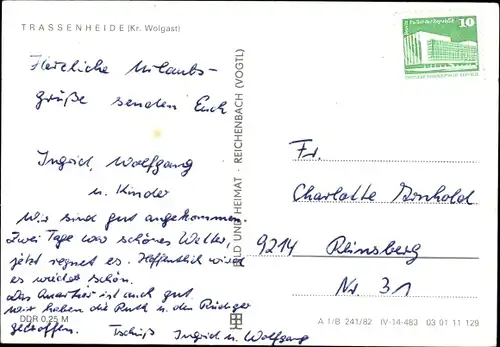 TRASSENHEIDE (Kr. Wolgast)
Herzliche Urlaubs-
grüße senden Euch
Ingrid, Wolfgang
u. Kinder
Wir sind gut angekommen.
Zwei Tage war schönes Wetter,
jetzt regnet es. Hoffentlich wird
es wieder schön.
Das Quartier ist auch gut.
Wir haben die Ruth u. den Rüdiger
getroffen. Tschüß Ingrid u. Wolfgang
DDR 0,25 M
BILD UND HEIMAT · REICHENBACH (VOGTL)
10
Fr.
Charlotte
9214 Reinsberg
Nr. 31
A 1/B 241/82 IV-14-483 03 01 11 129